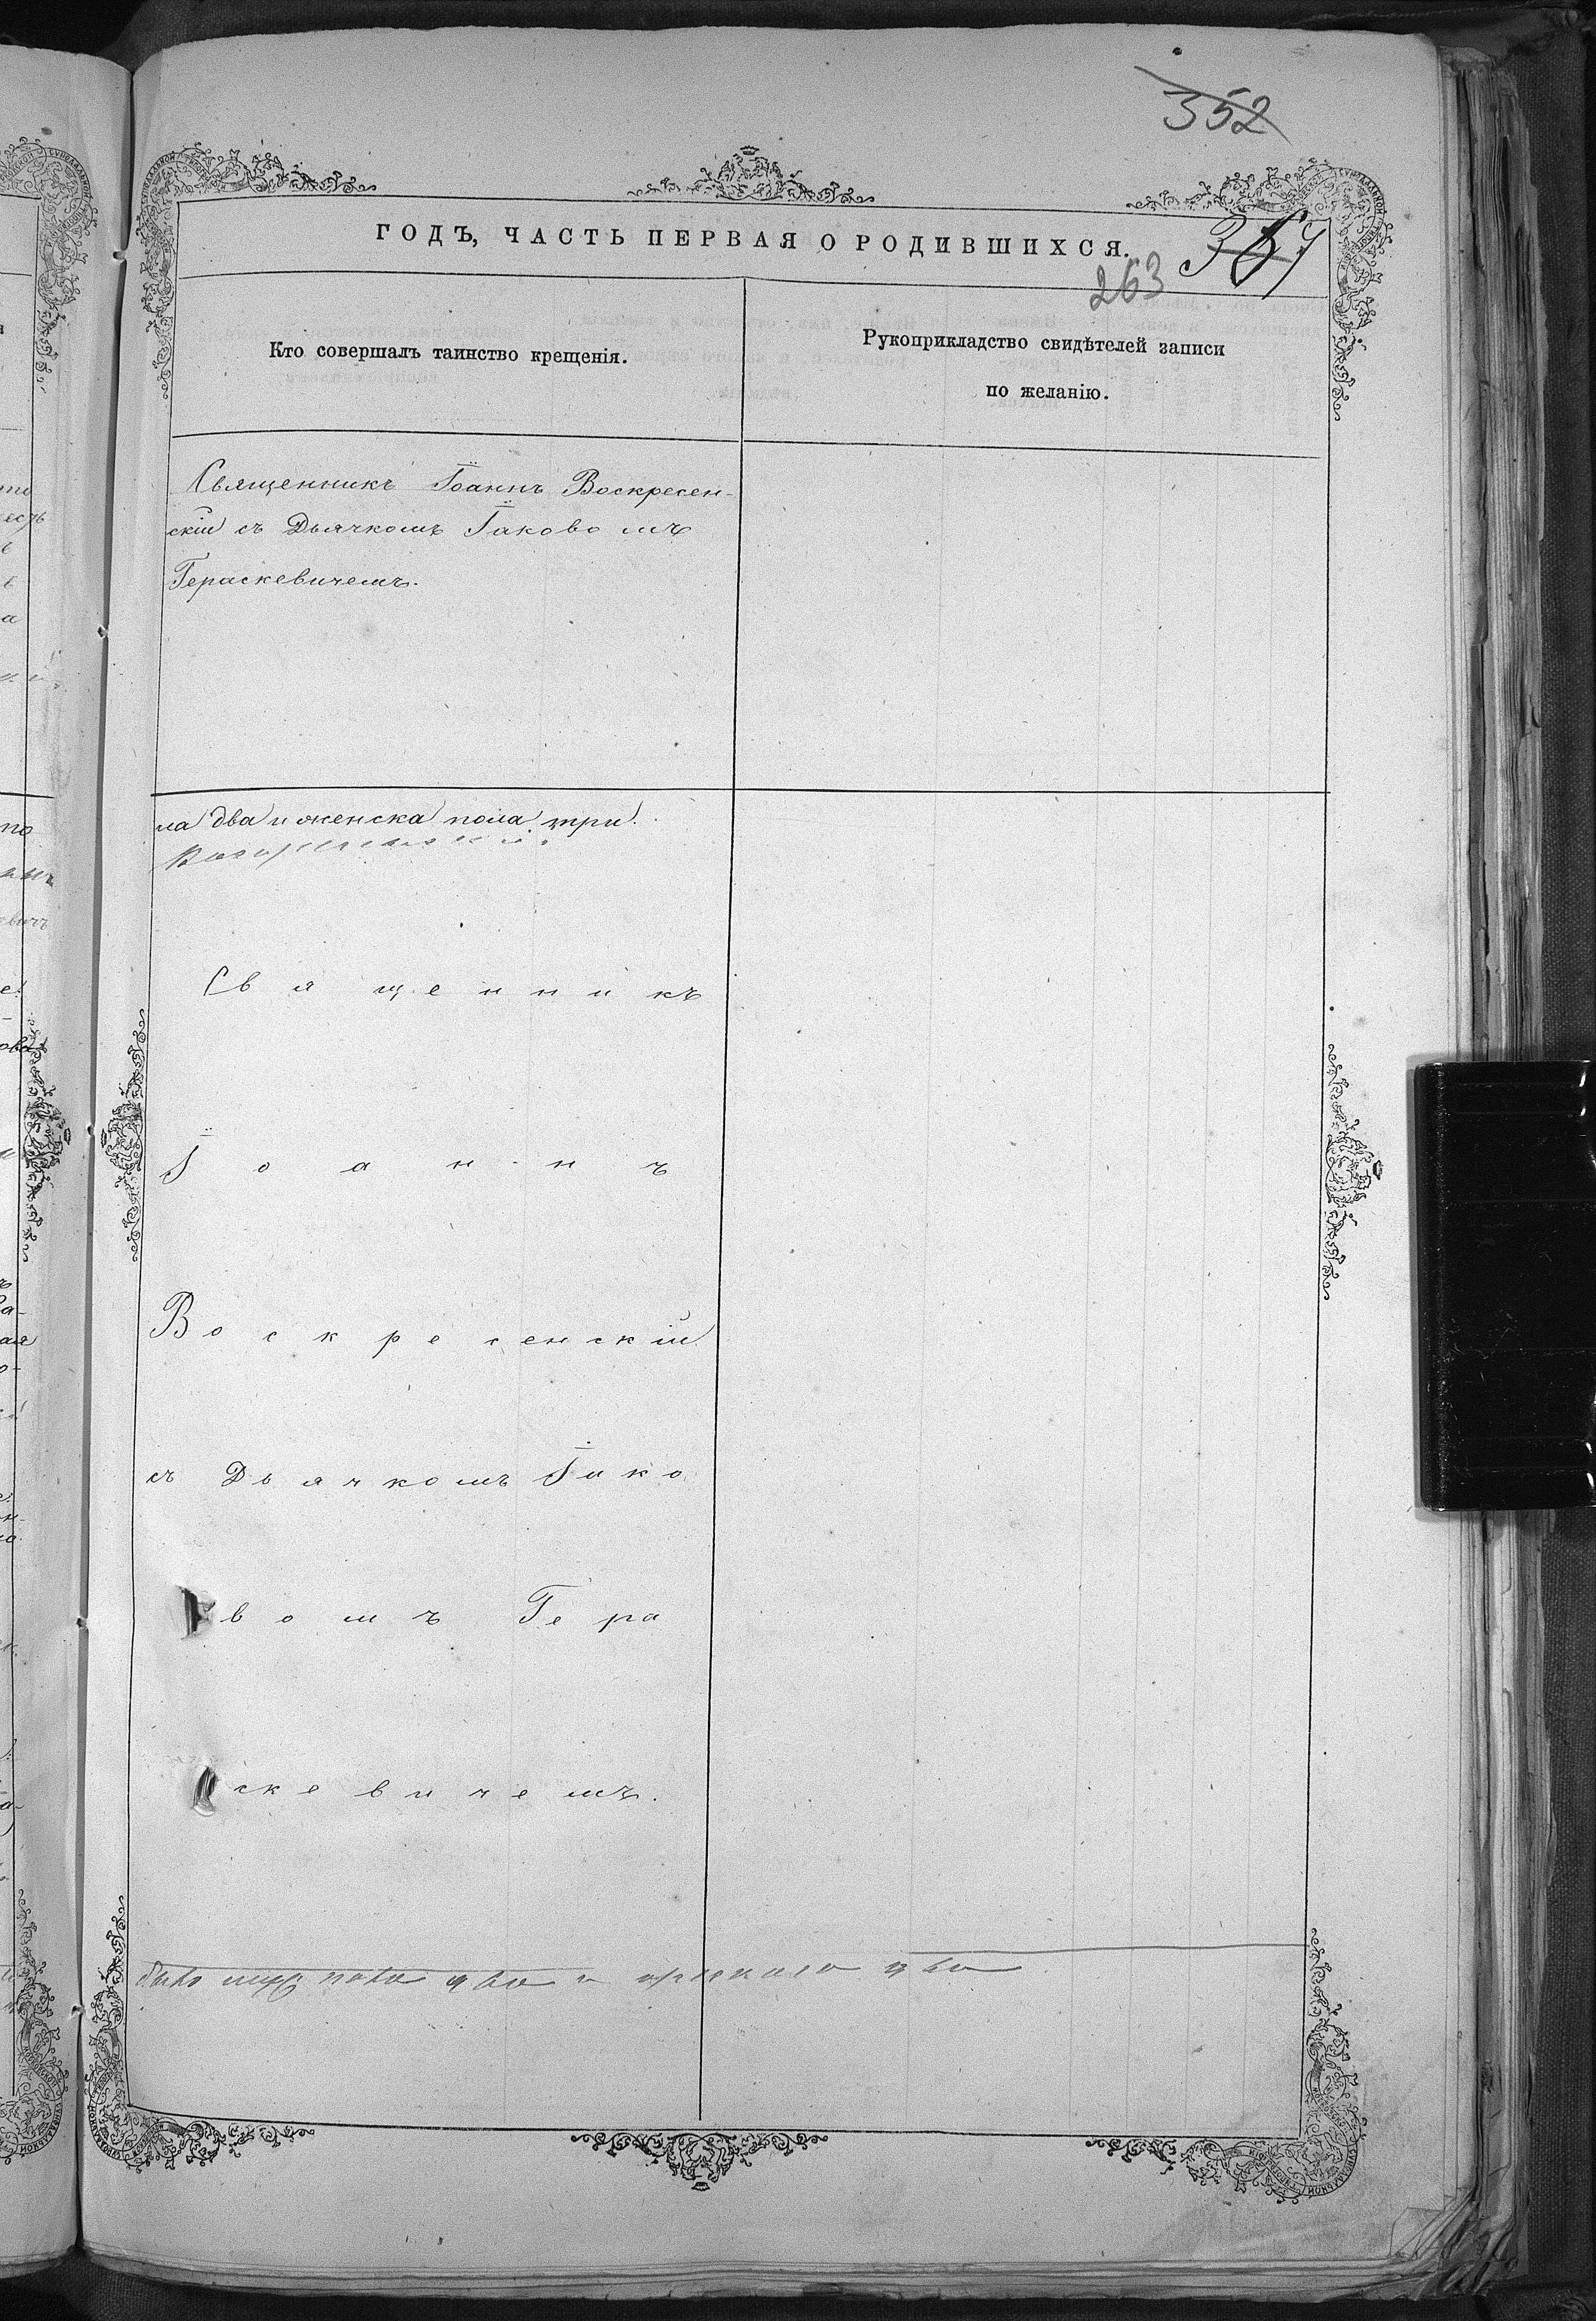 352
ГОДЪ, ЧАСТЬ ПЕРВАЯ О РОДИВШИХСЯ.
263
Кто совершалъ таинство крещенія.
Рукоприкладство свидѣтелей записи
по желанію.
Священникъ Іоаннъ Воскресен-
скій съ Дьячкомъ Іаковомъ
Гераскевичемъ.
ла два и женска пола три.
Воскресенскій.
Священникъ
Іоаннъ
Воскресенскій
съ Дьячкомъ Іако
вомъ Гера
скевичемъ.
пола два и женскаго два